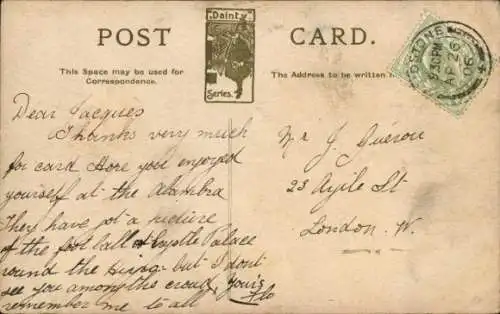 POST CARD.
Dainty
Series.
This Space may be used for
Correspondence.
The Address to be written
STONE
3.30 PM
AP 26
06
Dear Jacques
Thanks very much
for card Hope you enjoyed
yourself at the Alambra
They have got a picture
of the foot ball at Crystle Palace
round the but I dont
see you among the crowd, Yours
remember me to all Flo
Mr J. Guerou
23 Ayile St
London. W.